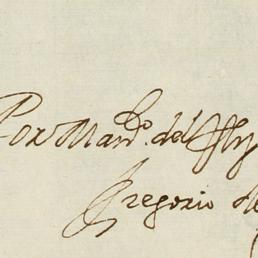 Por Mand.º del
Gregorio de